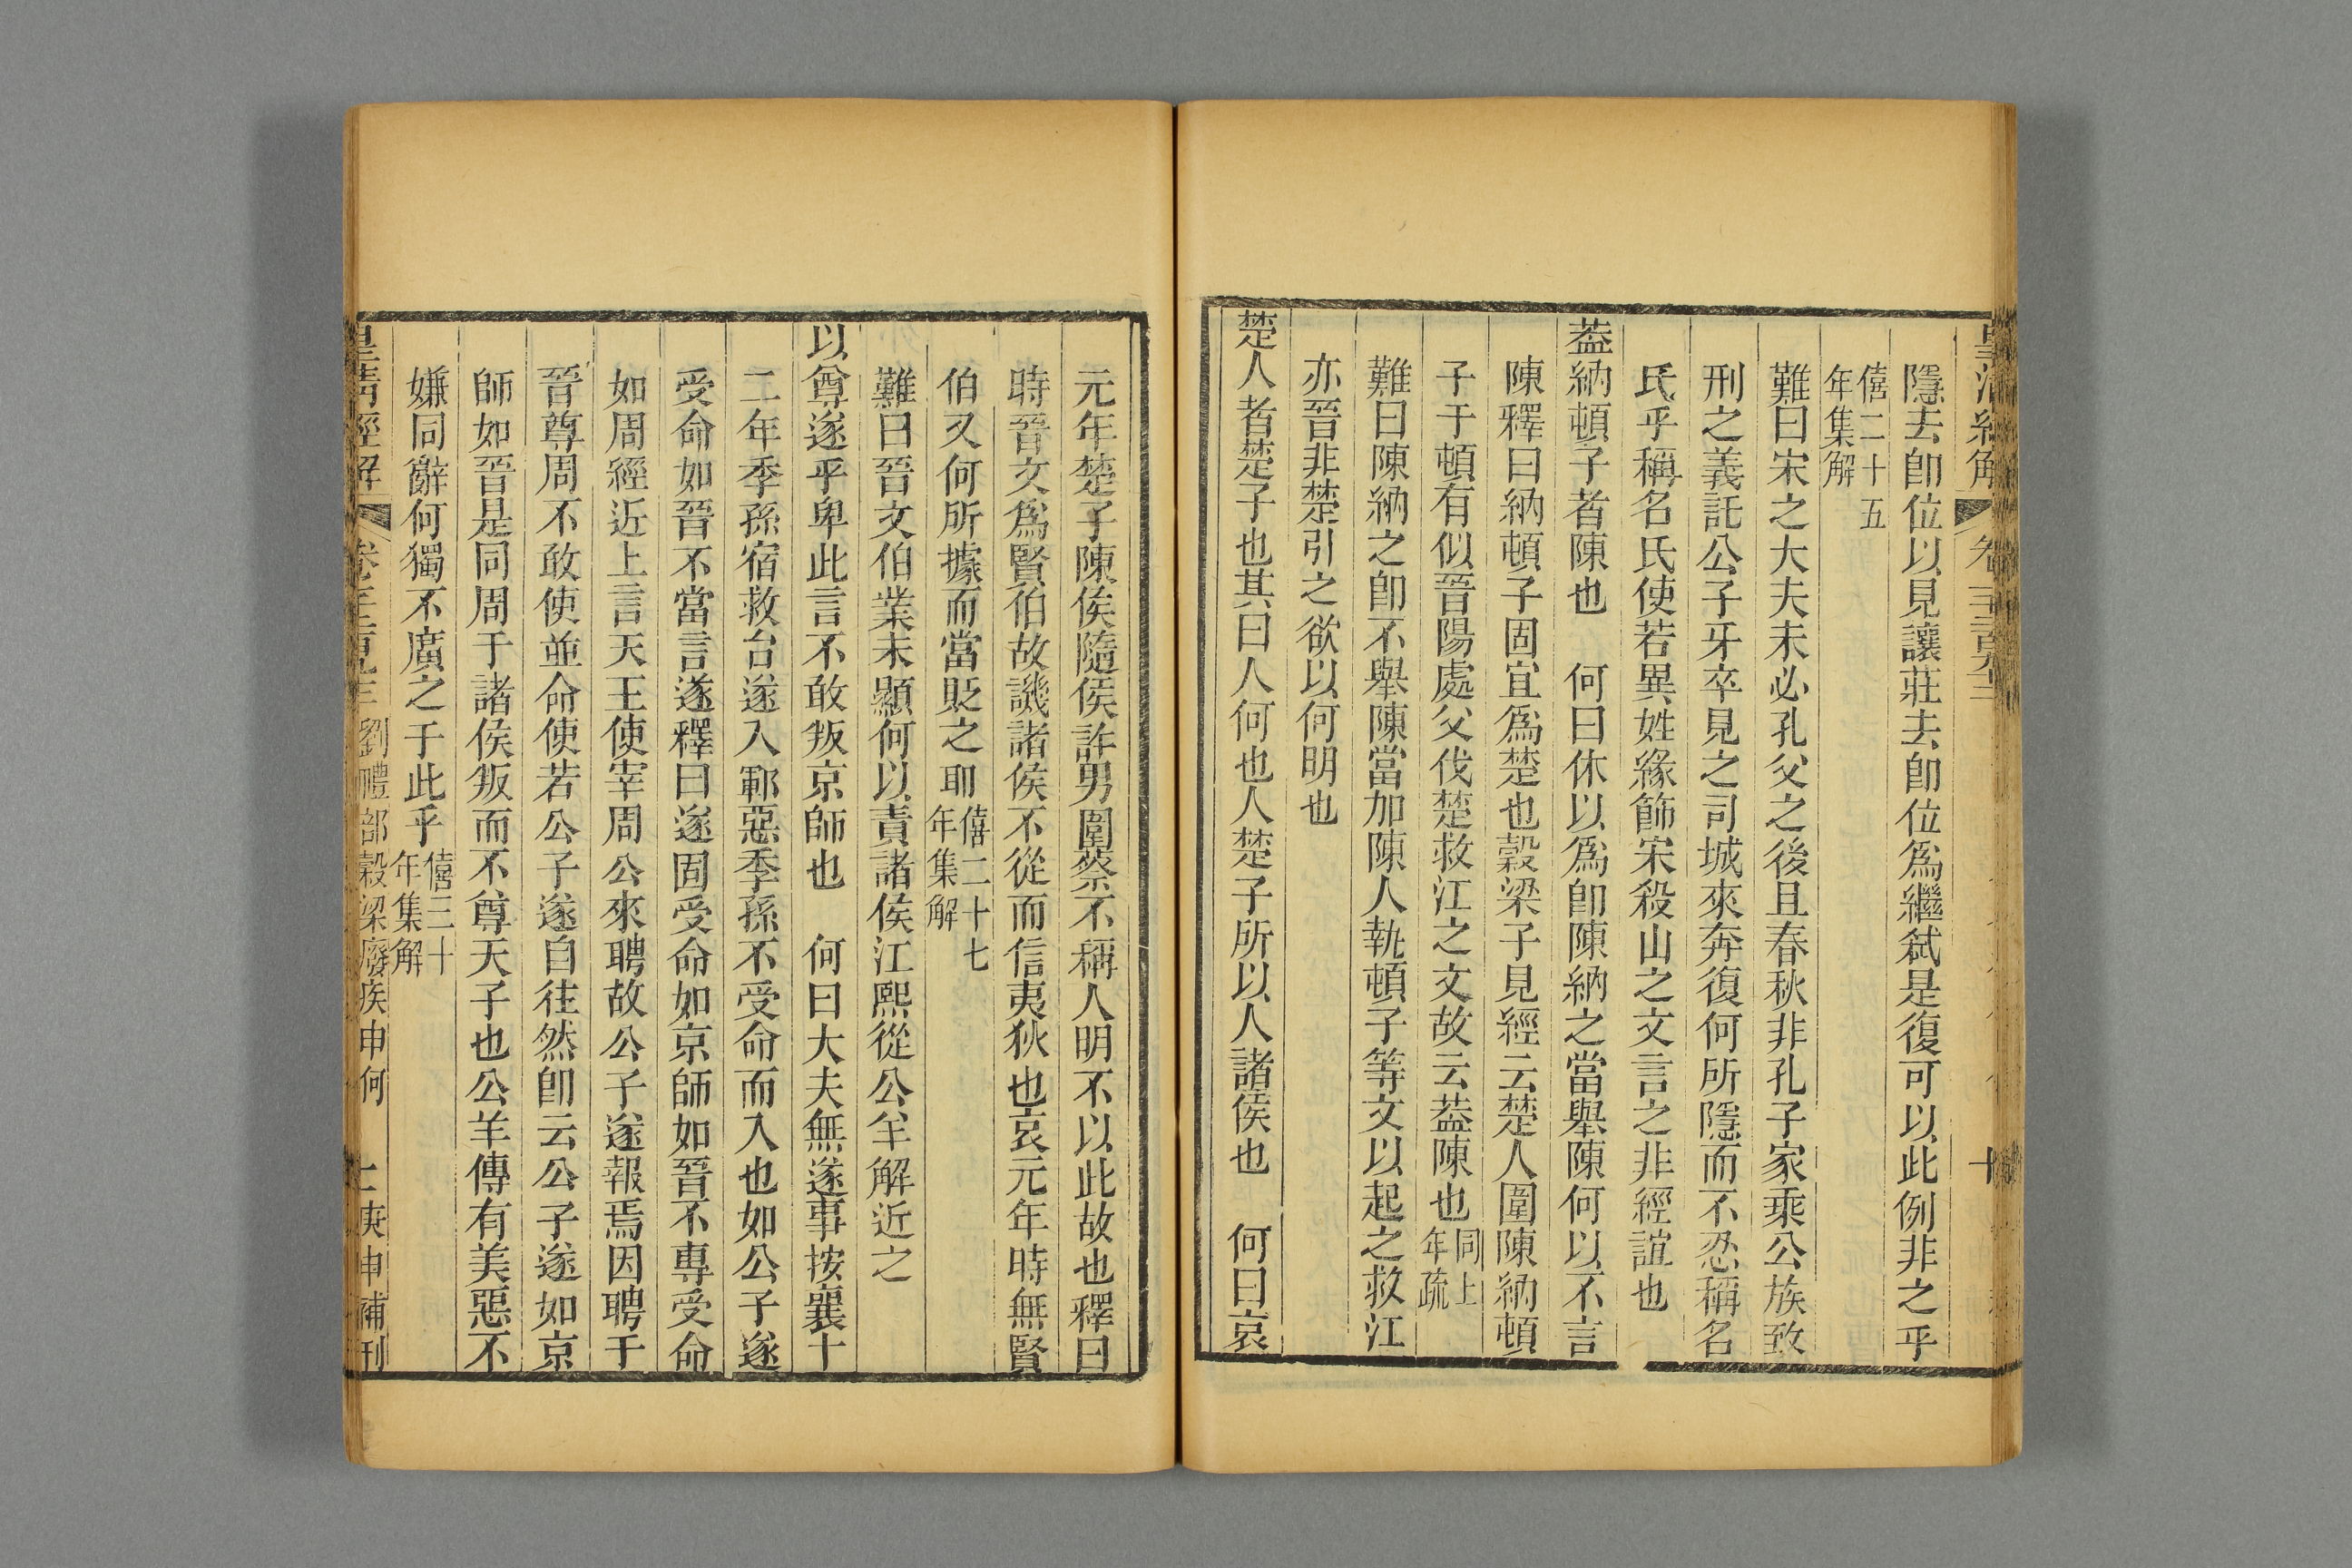 隱去卽位以見讓莊去卽位爲繼弑是復可以此例非之乎
僖二十五
年集解
難曰宋之大夫未必孔父之後且春秋非孔子家乘公族致
刑之義託公子牙卒見之司城來奔復何所隱而不忍稱名
氏乎稱名氏使若異姓緣飾宋殺山之文言之非經誼也
葢納頓子者陳也　何曰休以爲卽陳納之當舉陳何以不言
陳釋曰納頓子固宜爲楚也穀梁子見經云楚人圍陳納頓
子于頓有似晉陽處父伐楚救江之文故云葢陳也同上年疏
難曰陳納之卽不舉陳當加陳人執頓子等文以起之救江
亦晉非楚引之欲以何明也
楚人者楚子也其曰人何也人楚子所以人諸侯也　何曰哀
元年楚子陳侯隨侯許男圍蔡不稱人明不以此故也釋曰
時晉文爲賢伯故譏諸侯不從而信夷狄也哀元年時無賢
伯又何所據而當貶之耶僖二十七年集解
難曰晉文伯業未顯何以責諸侯江熙從公羊解近之
以尊遂乎卑此言不敢叛京師也　何曰大夫無遂事按襄十
二年季孫宿救台遂入鄆惡季孫不受命而入也如公子遂
受命如晉不當言遂釋曰遂固受命如京師如晉不專受命
如周經近上言天王使宰周公來聘故公子遂報焉因聘于
晉尊周不敢使並命使若公子遂自往然卽云公子遂如京
師如晉是同周于諸侯叛而不尊天子也公羊傳有美惡不
嫌同辭何獨不廣之于此乎僖三十年集解
皇清經解
劉禮部穀梁廢疾申何
庚申補刊